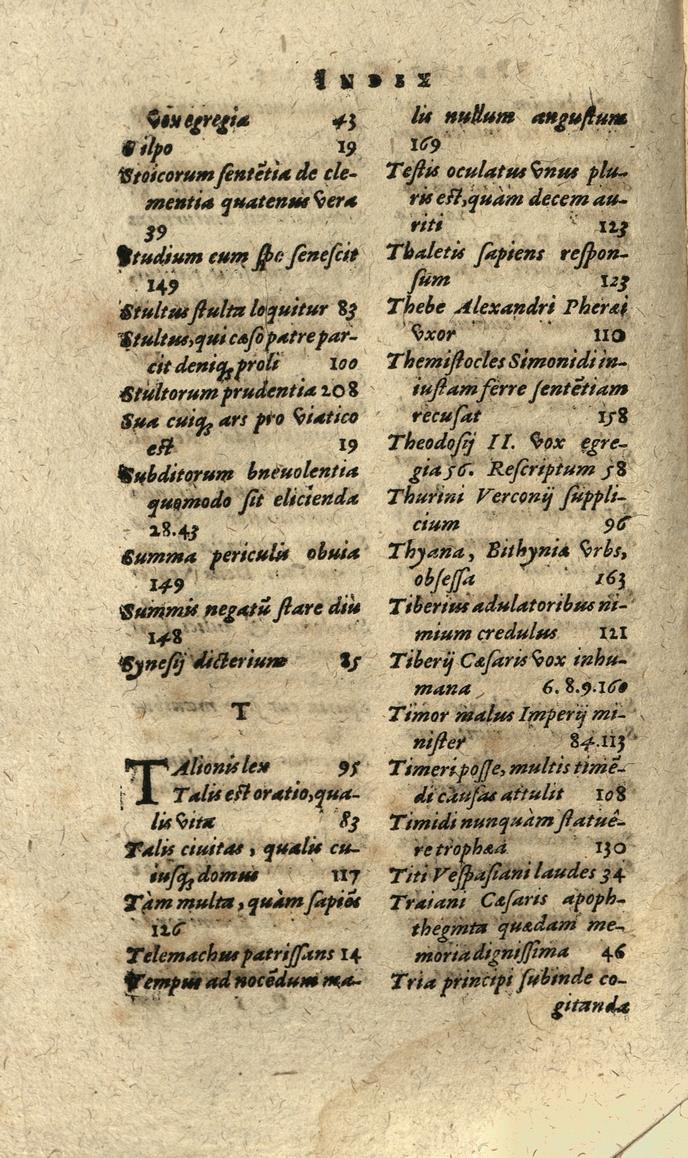 INDEX
Vox egregia 43
Stilpo 19
Stoicorum sentētia de cle-
mentia quatenus vera
39
Studium cum spe senescit
149
Stultus stulta loquitur 83
Stultus, qui cæso patre par-
cit deniq; proli 100
Stultorum prudentia 208
Sua cuiq; ars pro viatico
est 19
Subditorum bneuolentia
quomodo sit elicienda
28.43
Summa periculis obuia
149
Summis negatū stare diu
148
Synesij dicterium 85
T
TAlionis lex 95
Talis est oratio, qua-
lis vita 83
Talis ciuitas, qualis cu-
iusq; domus 117
Tàm multa, quàm sapiēs
126
Telemachus patrissans 14
Tempus ad nocēdum ma-
lis nullum angustum
169
Testis oculatus vnus plu-
ris est, quàm decem au-
riti 123
Thaletis sapiens respon-
sum 123
Thebe Alexandri Pheræi
vxor 110
Themistocles Simonidi in-
iustam ferre sentētiam
recusat 158
Theodosij II. vox egre-
gia 56. Rescriptum 58
Thurini Verconij suppli-
cium 96
Thyana, Bithyniæ vrbs,
obsessa 163
Tiberius adulatoribus ni-
mium credulus 121
Tiberij Cæsaris vox inhu-
mana 6.8.9.160
Timor malus Imperij mi-
nister 84.113
Timeri posse, multis timē-
di causas attulit 108
Timidi nunquàm statuê-
re trophæa 130
Titi Vespasiani laudes 34
Traiani Cæsaris apoph-
thegmta quædam me-
moria dignissima 46
Tria principi subinde co-
gitanda